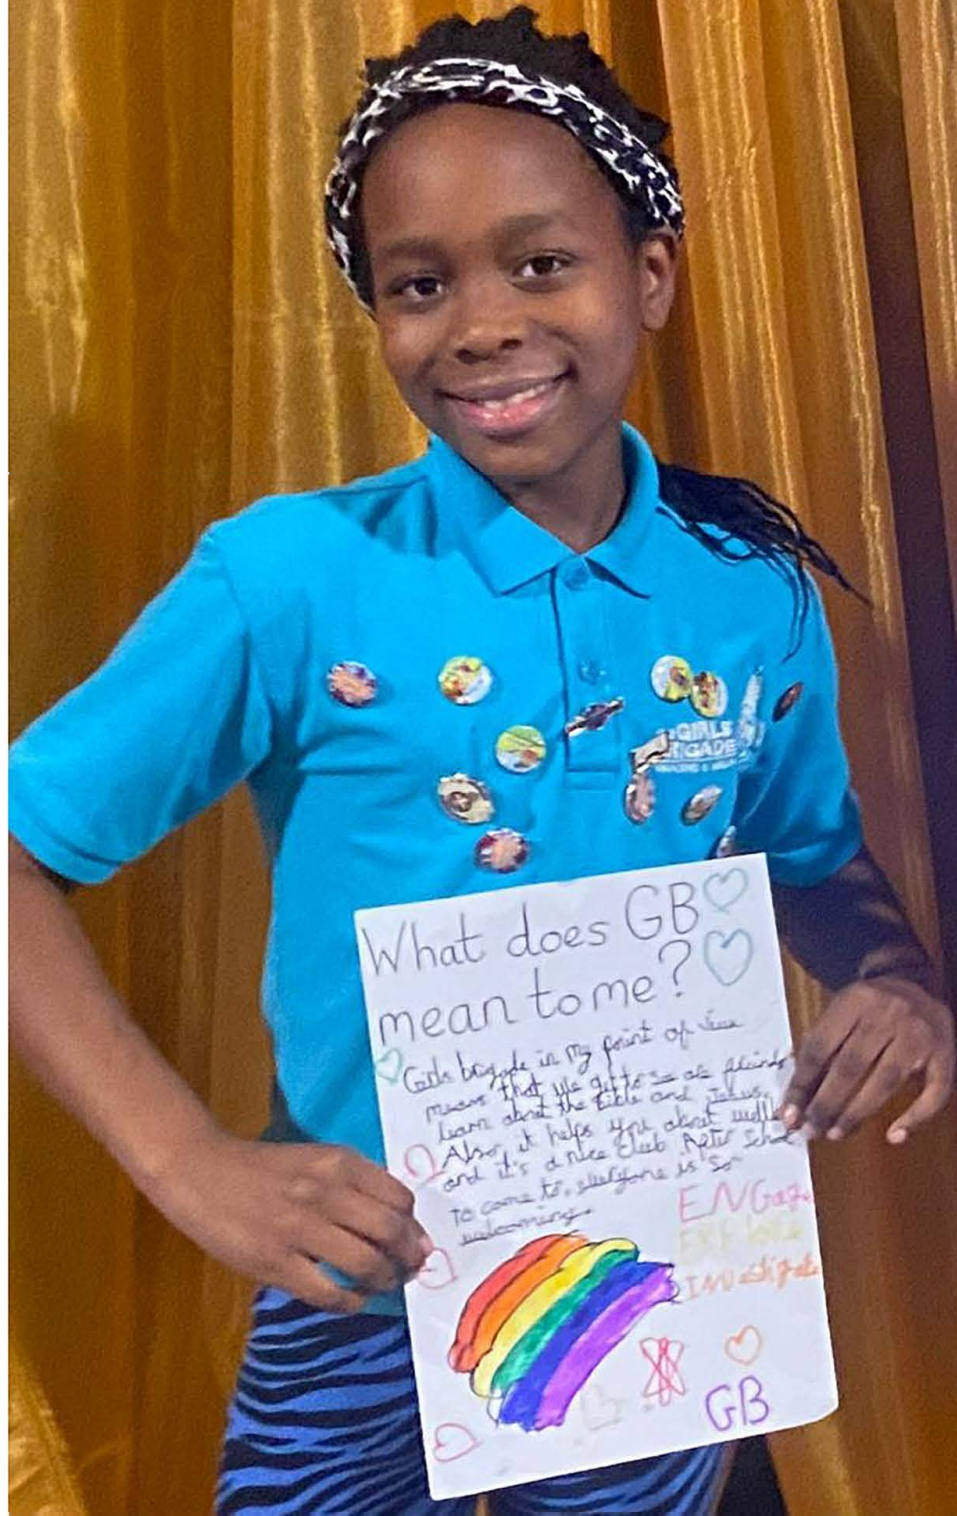 GIRLS
BRIGADE
What does GB
mean to me?
Girls brigade in my point of view
means that we get to see as friends
learn about the Bible and Jesus.
Also, it helps you about
and it's a nice club After School
to come to, everyone is so
welcoming.
ENGage
EXPlore
INVestigate
GB